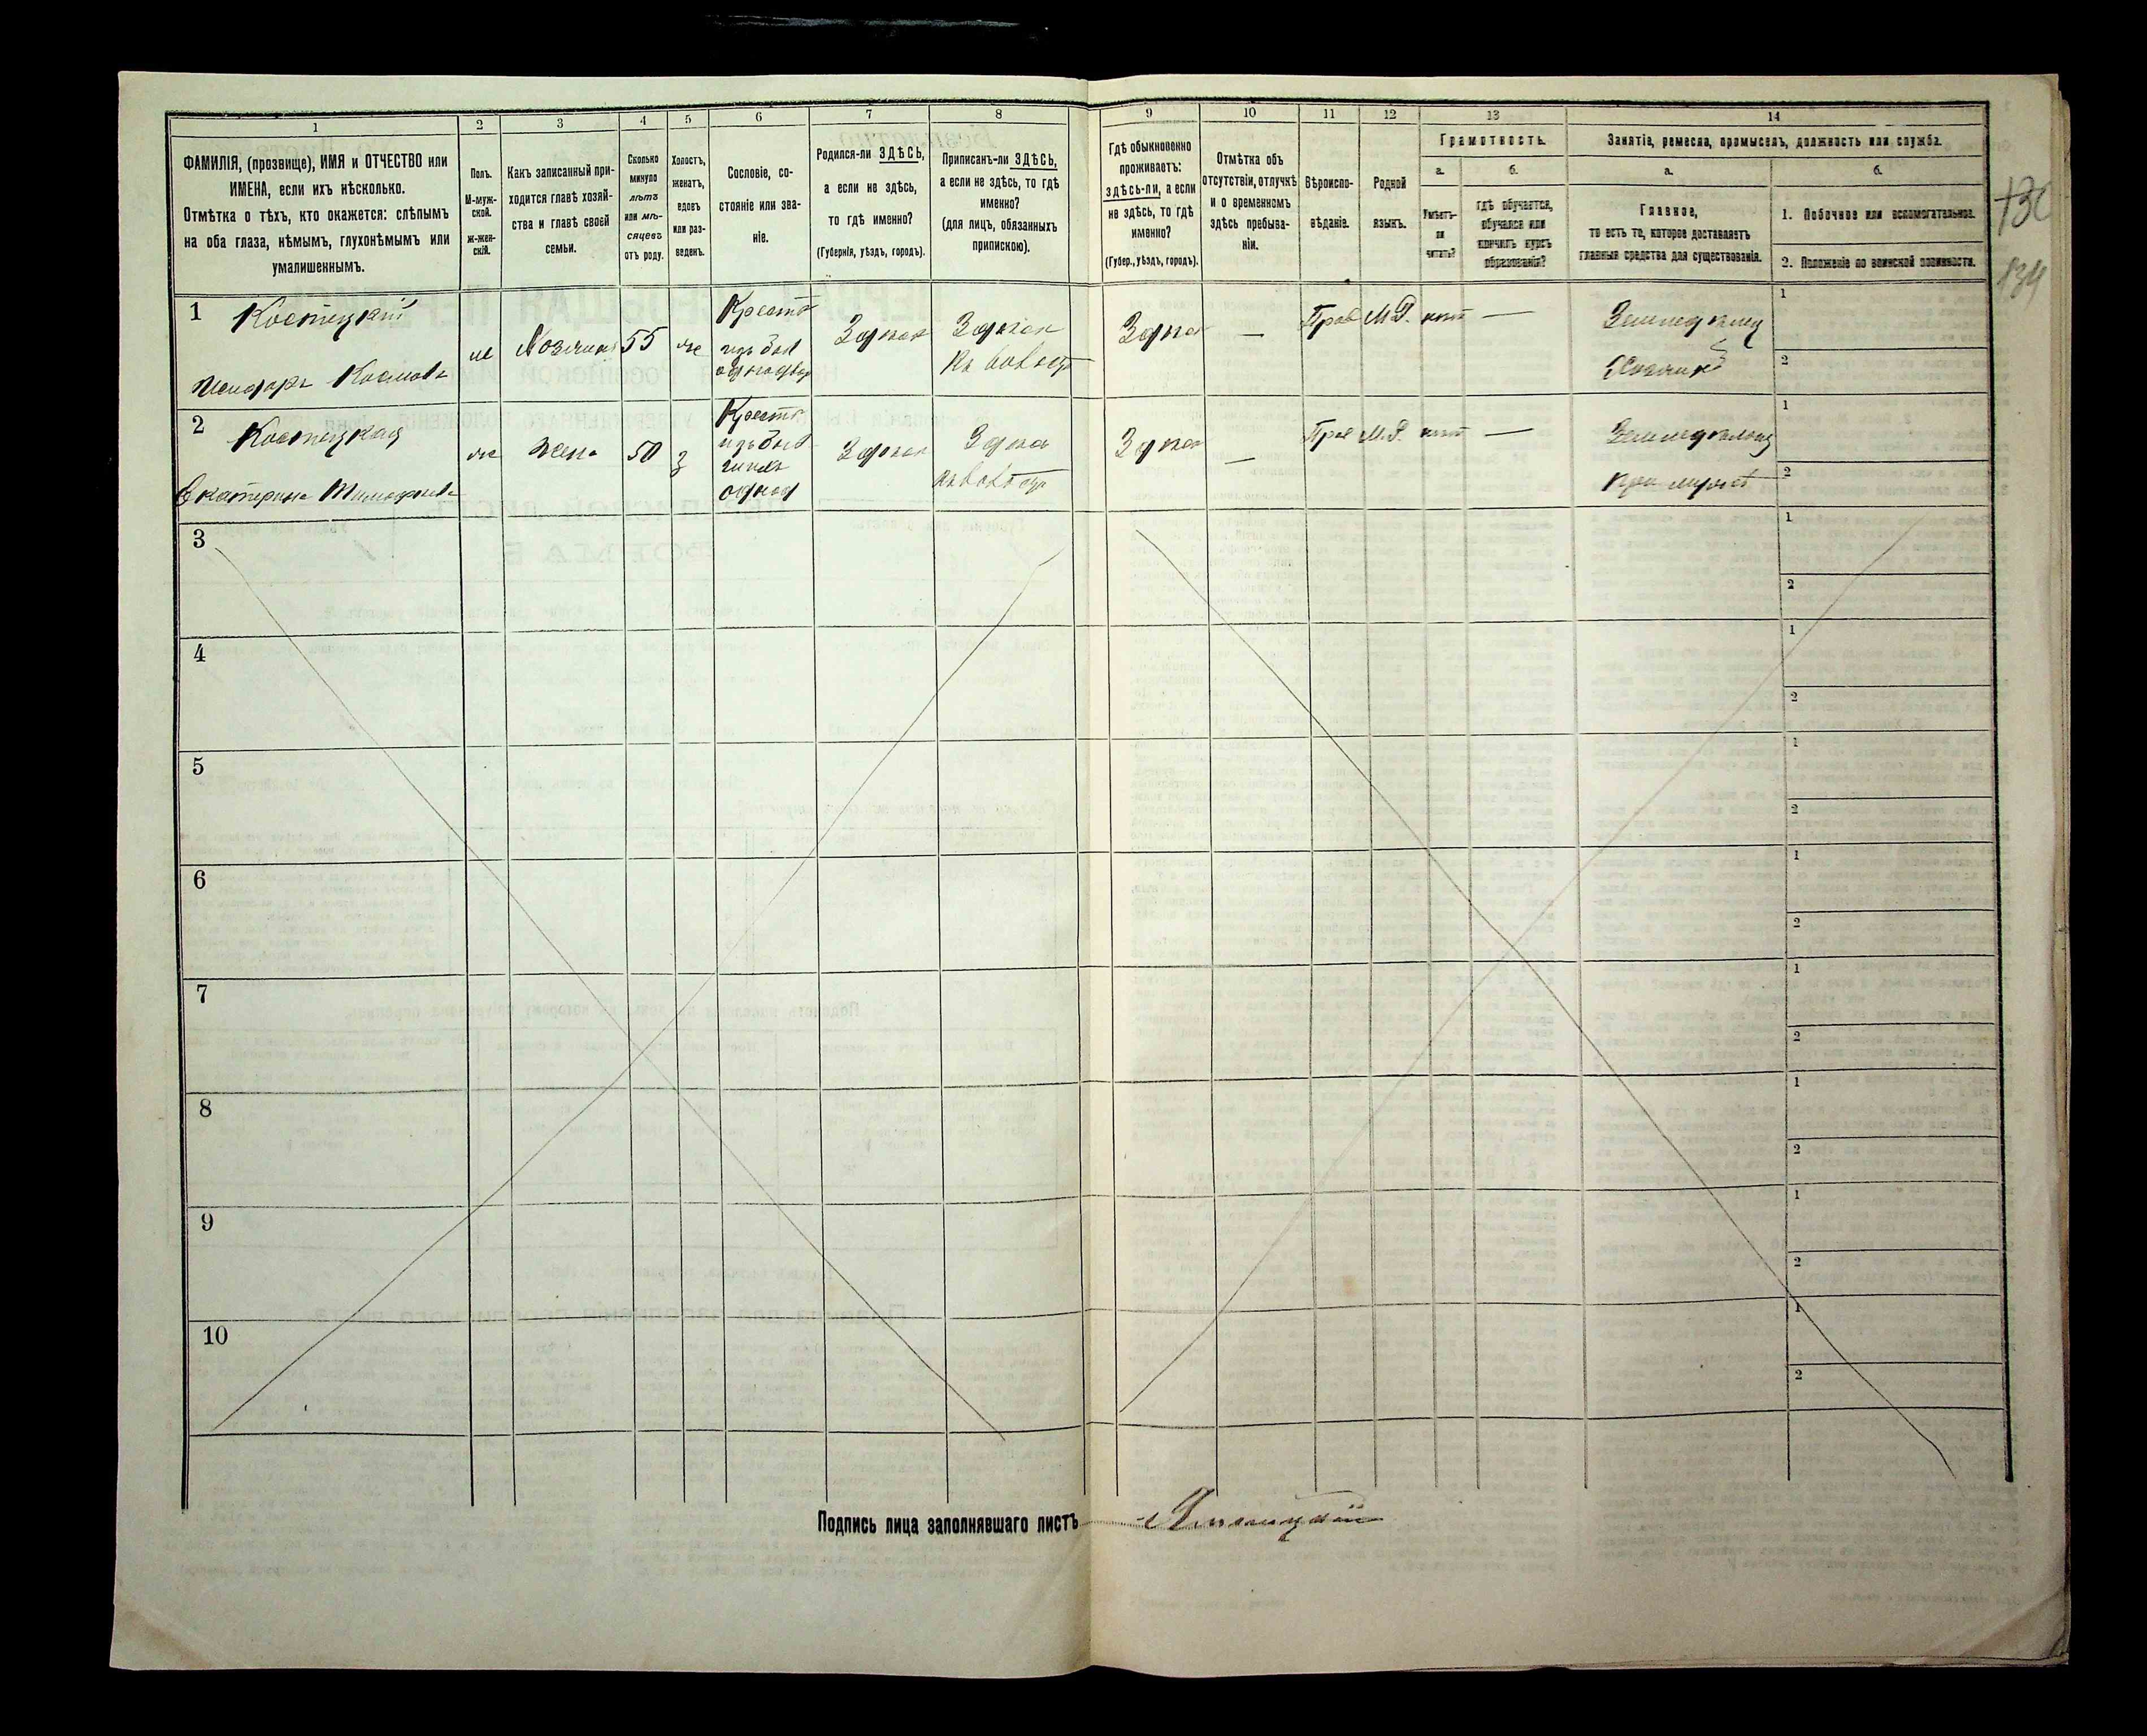 1
2
3
4
5
6
7
8
9
10
11
12
13
14
ФАМИЛІЯ, (прозвище), ИМЯ и ОТЧЕСТВО или
ИМЕНА, если ихъ нѣсколько.
Отмѣтка о тѣхъ, кто окажется: слѣпымъ
на оба глаза, нѣмымъ, глухонѣмымъ или
умалишеннымъ.
Полъ.
М-муж-
ской.
ж-жен-
скій.
Какъ записанный при-
ходится главѣ хозяй-
ства и главѣ своей
семьи.
Сколько
минуло
лѣтъ
или мѣ-
сяцевъ
отъ роду.
Холостъ,
женатъ,
вдовъ
или раз-
веденъ.
Сословіе, со-
стояніе или зва-
ніе.
Родился-ли ЗДѢСЬ,
а если не здѣсь,
то гдѣ именно?
(Губернія, уѣздъ, городъ).
Приписанъ-ли ЗДѢСЬ,
а если не здѣсь, то гдѣ
именно?
(для лицъ, обязанныхъ
припискою).
Гдѣ обыкновенно
проживаетъ:
здѣсь-ли, а если
не здѣсь, то гдѣ
именно?
(Губер., уѣздъ, городъ).
Отмѣтка объ
отсутствіи, отлучкѣ
и о временномъ
здѣсь пребыва-
ніи.
Вѣроиспо-
вѣданіе.
Родной
языкъ.
Грамотность.
а.
б.
Умѣетъ-
ли
читать?
гдѣ обучается,
обучался или
кончилъ курсъ
образованія?
Занятіе, ремесло, промыселъ, должность или служба.
а.
б.
Главное,
то есть то, которое доставляетъ
главныя средства для существованія.
1. Побочное или вспомогательное.
2. Положеніе по воинской повинности.
130
134
1
Костецкій
55
Крест
Здѣсь
Здѣсь
Здѣсь
—
Прав
М.Р.
нѣт
—
Хозяинъ
1
2
2
Костецкая
Екатерина Тимофѣева
жена
50
Крест
Здѣсь
Здѣсь
Здѣсь
—
Прав
М.Р.
нѣт
—
при мужѣ
1
2
3
1
2
4
1
2
5
1
2
6
1
2
7
1
2
8
1
2
9
1
2
10
1
2
Подпись лица заполнявшаго листъ